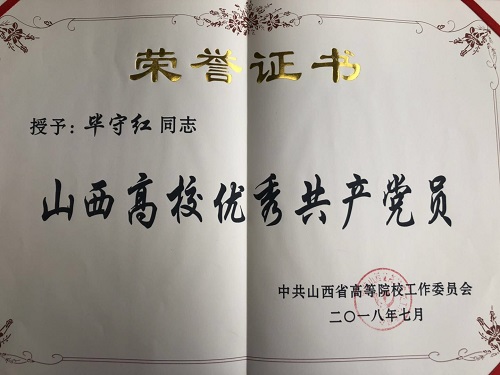 荣誉证书
授予：毕守红 同志
山西高校优秀共产党员
中共山西省高等院校工作委员会
二〇一八年七月